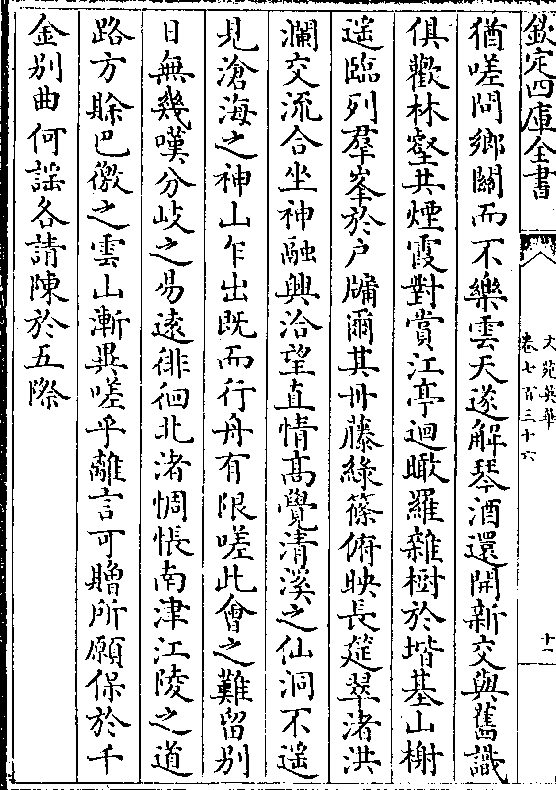 欽定四庫全書
文苑英華
卷七百三十六
十一
猶嗟問鄉關而不樂雲天遂解琴酒還開新交與舊識
俱歡林壑共煙霞對賞江亭迴瞰羅雜樹於堦基山榭
遥臨列羣峯於户牖爾其丹藤緑篠俯映長筵翠渚洪
瀾交流合坐神融興洽望直情髙覺清溪之仙洞不遥
見滄海之神山乍出既而行舟有限嗟此會之難留别
日無幾嘆分岐之易遠徘徊北渚惆悵南津江陵之道
路方賒巴徼之雲山漸異嗟乎離言可贈所願保於千
金别曲何謡各請陳於五際